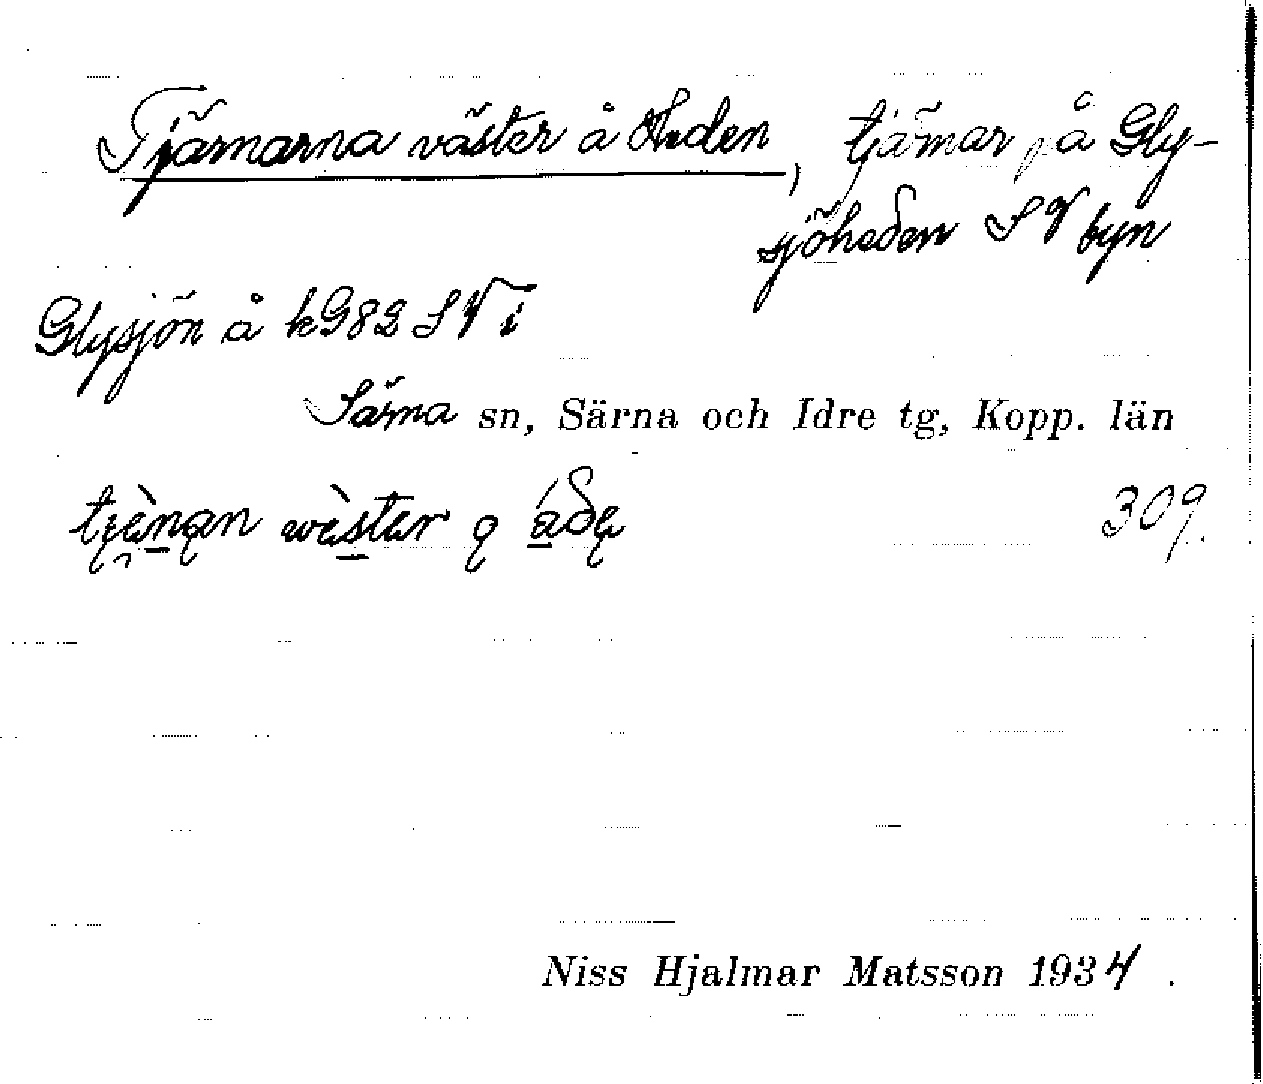 Tjärnarna väster å Heden, tjärnar på Gly-
sjöheden SV byn
Glysjön å kG82 SV i
Särna sn, Särna och Idre tg, Kopp. län
309.
Niss Hjalmar Matsson 1934.